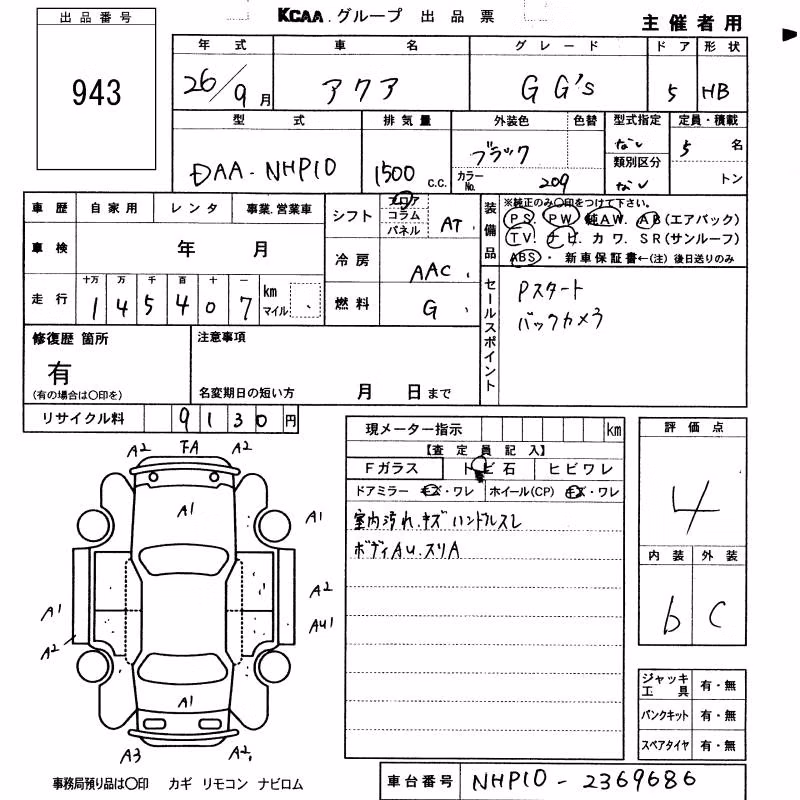 出品番号
943
KCAA.グループ 出品票
主催者用
年式 車名 グレード ドア 形状
26/9月 アクア G G's 5 HB
型式 排気量 外装色 色替 型式指定 定員・積載
DAA-NHP10 1500 C.C. ブラック なし 5名
カラーNo. 209 類別区分 なし トン
車歴 自家用 レンタ 事業.営業車
車検 年 月
走行 十万 万 千 百 十 一
1 4 5 4 0 7 km マイル
シフト フロア コラム パネル AT
冷房 AAC
燃料 G
装備品
※純正のみ〇印をつけて下さい。
PS. PW. 純AW. AB(エアバック)
TV. ナビ カワ. SR(サンルーフ)
ABS・ 新車保証書←(注) 後日送りのみ
セールスポイント
Pスタート
バックカメラ
修復歴 箇所
有
(有の場合は〇印を)
注意事項
名変期日の短い方 月 日まで
リサイクル料 9130円
現メーター指示 km
【査定員記入】
Fガラス トビ石 ヒビワレ
ドアミラー キズ・ワレ ホイール(CP) キズ・ワレ
室内汚れ.キズ ハンドルスレ
ボディAU.スリA
評価点
4
内装 外装
b C
ジャッキ工具 有・無
パンクキット 有・無
スペアタイヤ 有・無
A2 FA A2
A1
A1
A2
A1
AU1
A2
A1
A3 A2
事務局預り品は〇印 カギ リモコン ナビロム
車台番号 NHP10-2369686